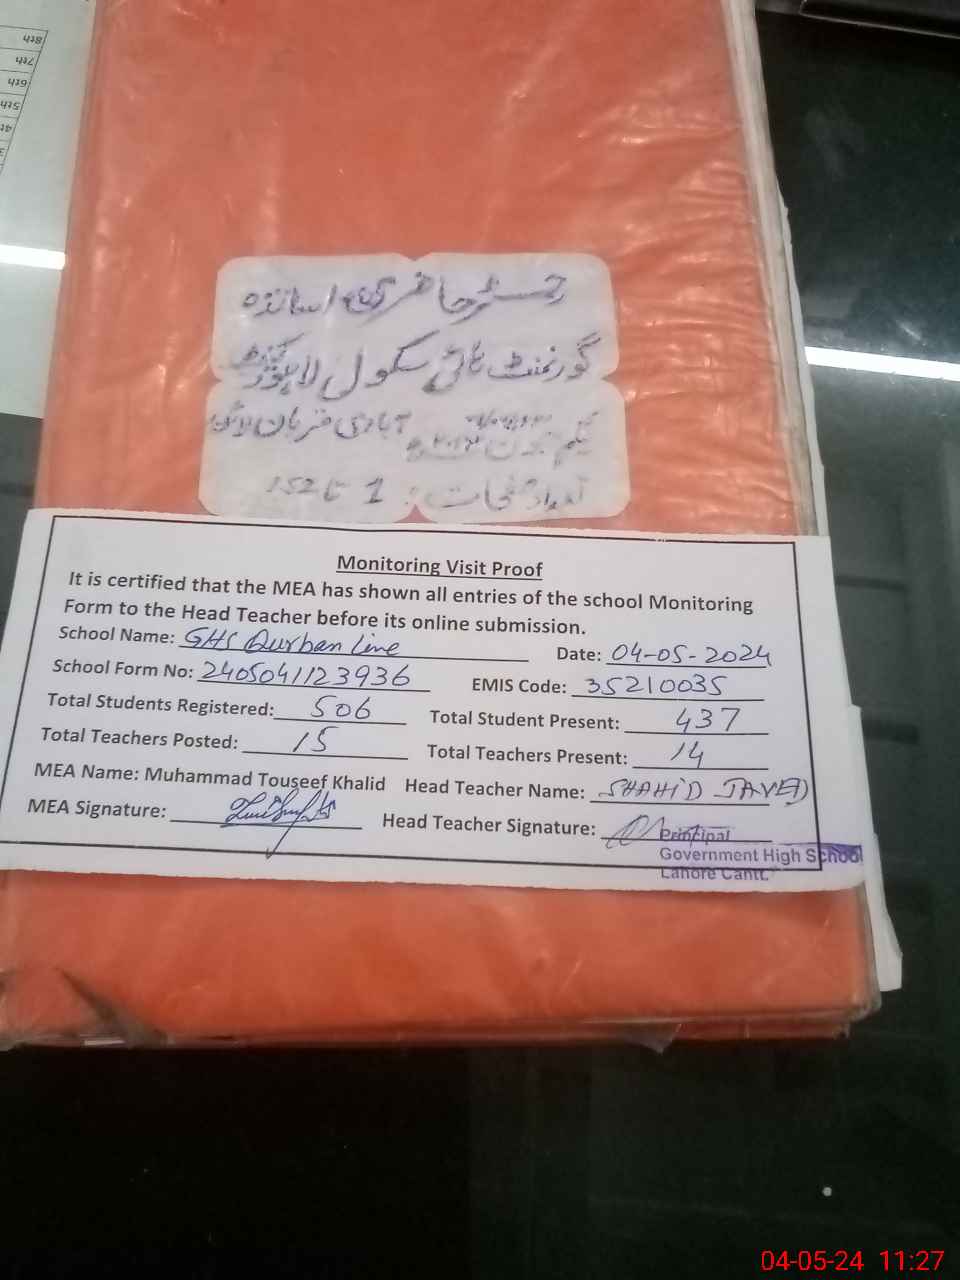 8th
7th
6th
5th
رجسٹر حاضری اساتذہ
گورنمنٹ ہائی سکول لاہور کینٹ
آبادی قربان لائن
یکم جون
تعداد صفحات: 1 تا 152
Monitoring Visit Proof
It is certified that the MEA has shown all entries of the school Monitoring
Form to the Head Teacher before its online submission.
School Name: GHS Qurban Line Date: 04-05-2024
School Form No: 240504112 3936 EMIS Code: 35210035
Total Students Registered: 506 Total Student Present: 437
Total Teachers Posted: 15 Total Teachers Present: 14
MEA Name: Muhammad Touseef Khalid Head Teacher Name: SHAHID JAVED
MEA Signature: Head Teacher Signature:
Principal
Government High School
Lahore Cantt.
04-05-24 11:27